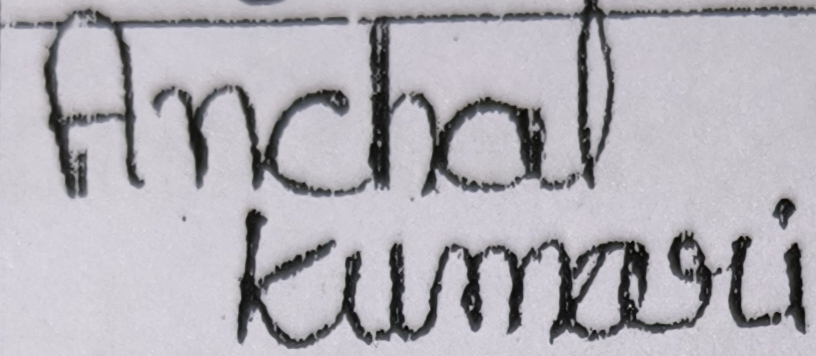 Anchal
Kumari